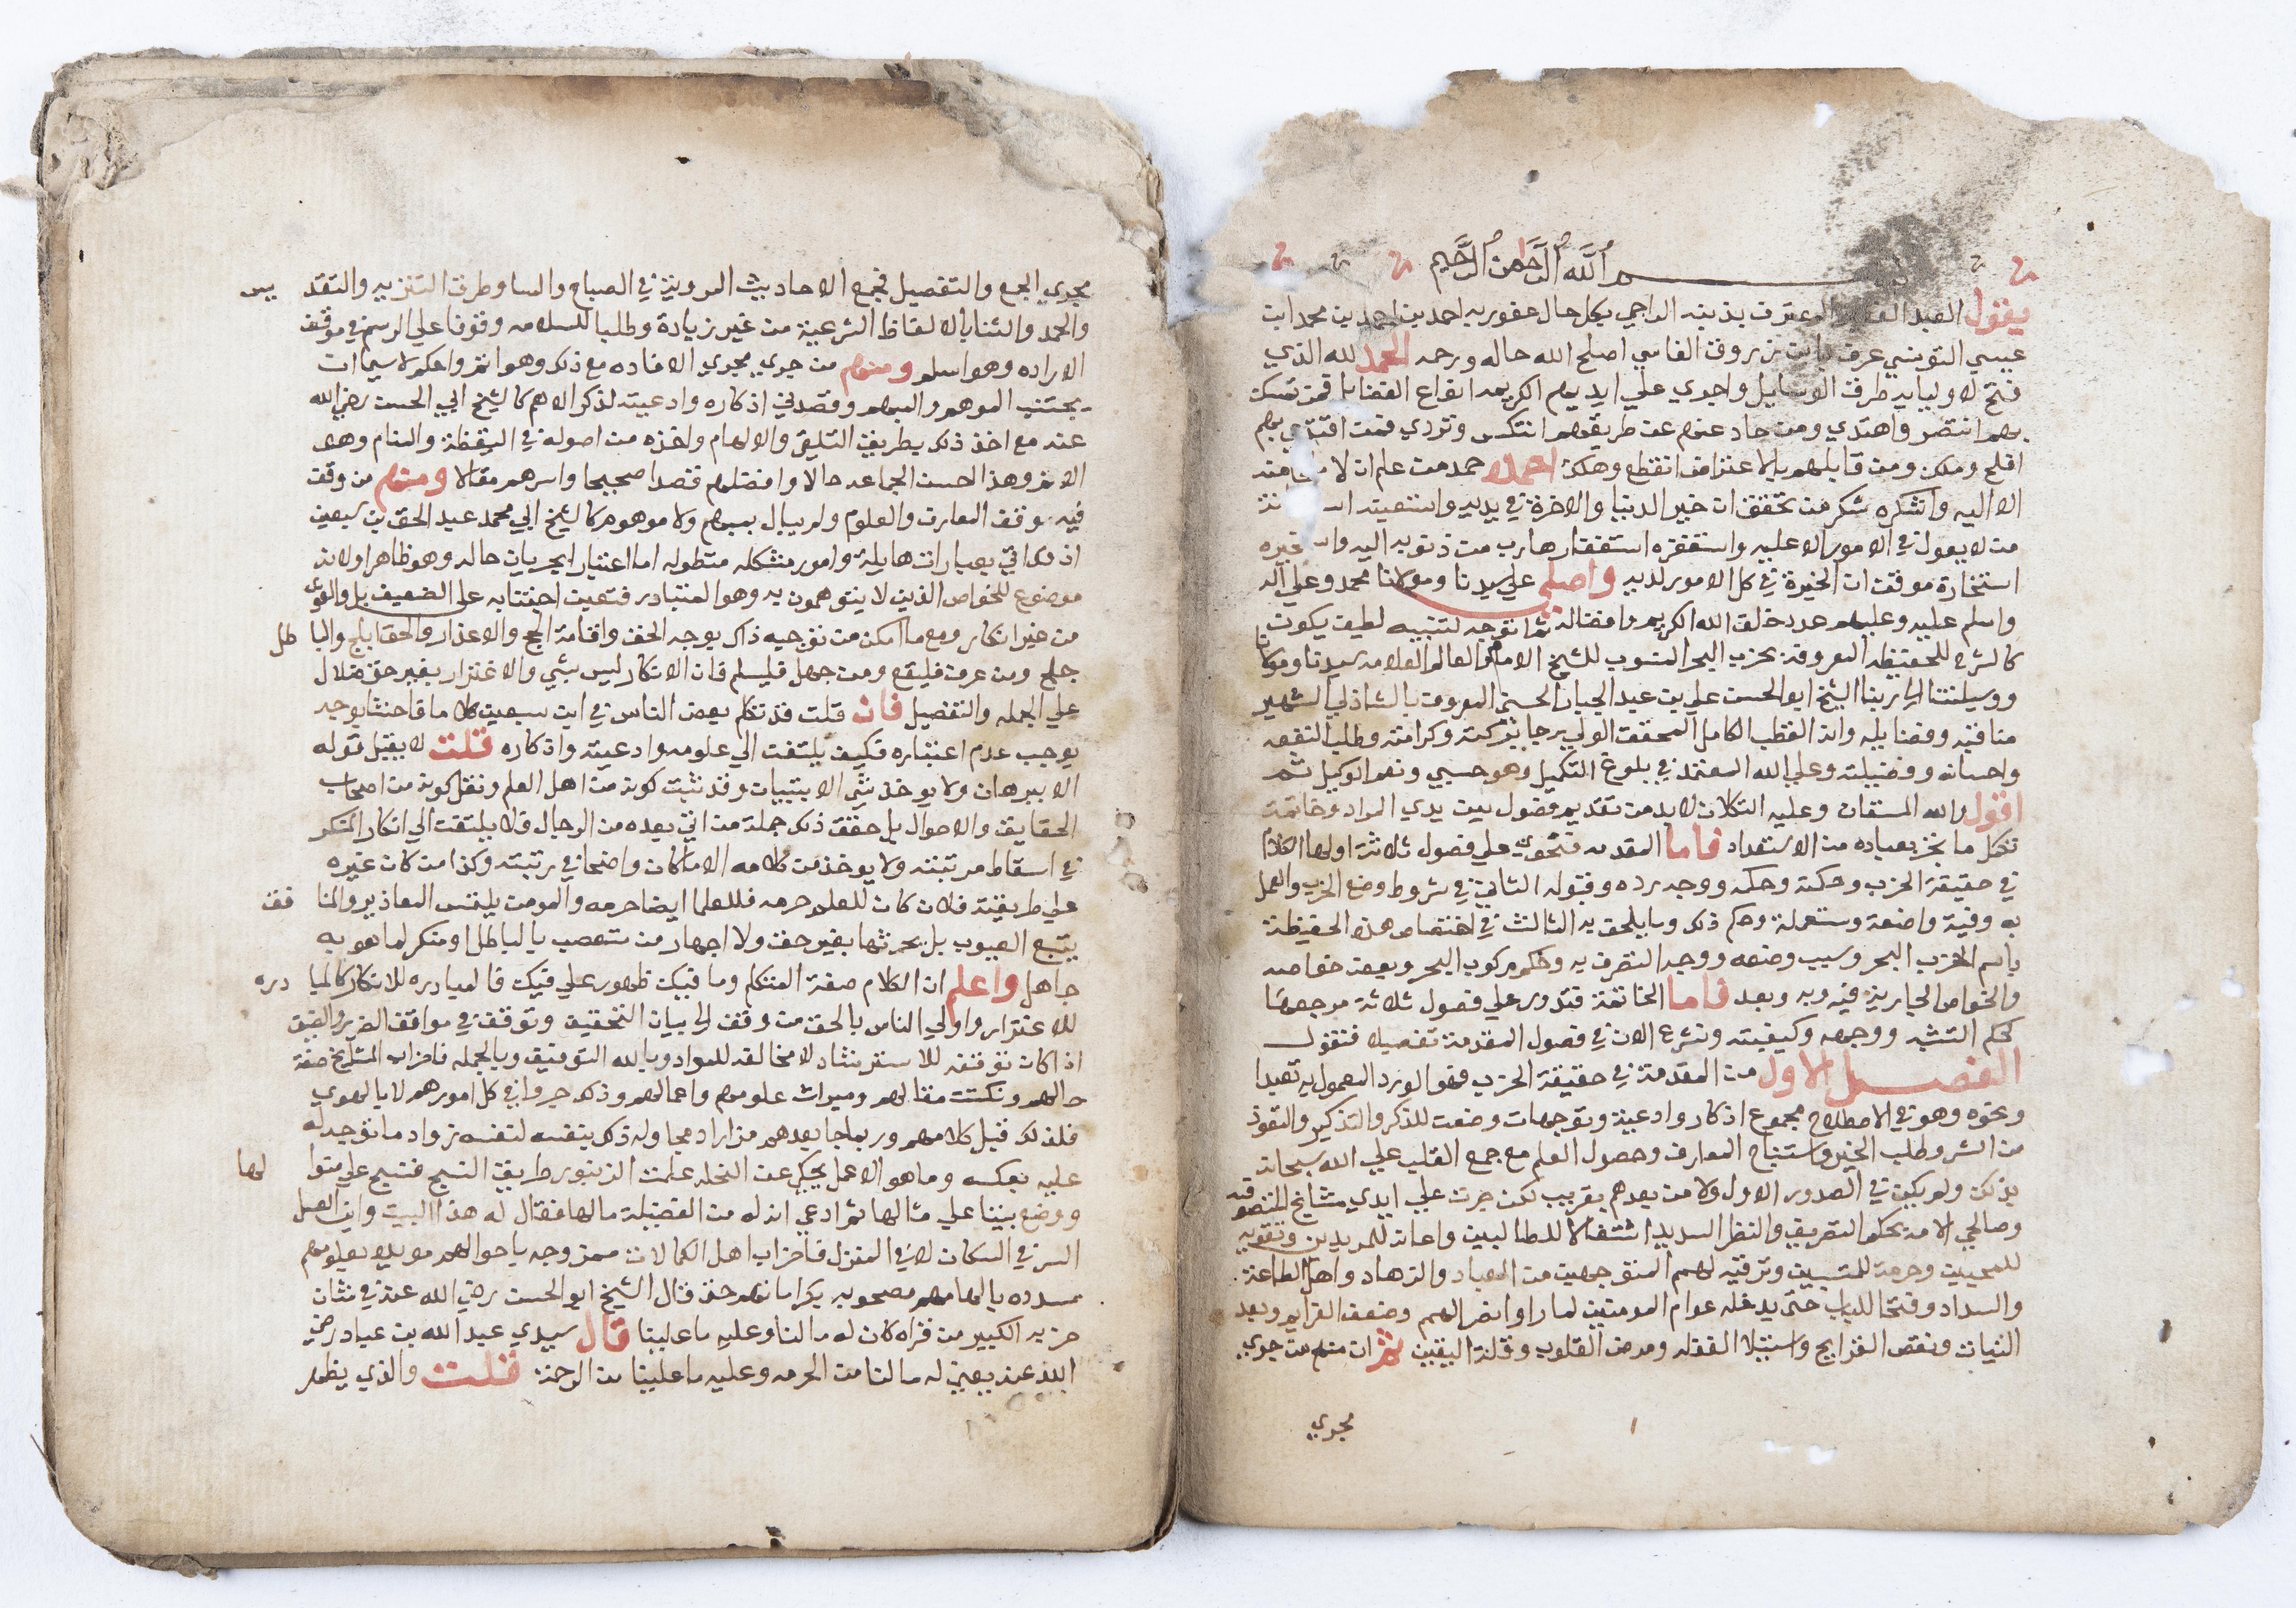 بسم الله الرحمن الرحيم
يقول العبد الفقير المعترف بذنبه الراجي بكل حال عفو ربه احمد بن احمد بن محمد ابن
عيسي التونسي عرف بابن زروق الفاسي اصلح الله حاله ورحمه الحمد لله الذي
فتح لاوليايه طرق الوسايل واجري علي ايديهم الكريمه انواع الفضايل فمن تمسك
بهم انتصر واهتدي ومن حاد عنهم عن طريقهم انتكس وتردي فمن اقتدي بهم
افلح وملك ومن قابلهم بالاعتراض انقطع وهلك احمده حمد من علم ان لا ملجا منه
الا اليه واشكره شكر من تحقق ان خير الدنيا والاخرة في يديه واستعينه
من لا يعول في الامور الا عليه واستغفره استغفار هارب من ذنوبه اليه
استخارة موقن ان الخيرة في كل الامور لديه واصلي علي سيدنا ومولانا محمد وعلي اله
واسلم عليه وعليهم عدد خلق الله الكريم وافضاله ثم اتوجه لتنبيه لطيف يكون
كالشرح للحفيظه المعروفة بحزب البحر المنسوب للشيخ الامام العالم العلامه سيدنا ومولانا
ووسيلتنا الي ربنا الشيخ ابو الحسن علي بن عبد الجبار الحسني المعروف بالشاذلي الشهير
مناقبه وفضايله وانه القطب الكامل المحقق الولي برجا بركته وكرامته وطلب النفعه
واحسانه وفضيلته وعلي الله المعتمد في بلوغ التكميل وهو حسبي ونعم الوكيل ثم
اقول والله المستعان وعليه التكلان لابد من تقديم فصول بين يدي المراد وخاتمة
تكمل ما نحن بعباده من الاستعداد فاما المقدمه فتحوي علي فصول ثلاثة اولها الكلام
في حقيقة الحزب وحكمة وحكمه ووجه رده وقبوله الثاني في شروط وضع الحزب والعمل
به وفية واضعه ومستعمله وحكم ذلك وما يلحق به الثالث في اختصاص هذه الحفيظة
باسم الحزب البحر وسبب وضعه ووجه التصرف به وحكم ركوب البحر وبعض خواصه
والخواص الجارية فيه وبه وبعد فاما الخاتمة فتدور علي فصول ثلاثة مرجعها
لحكم التشبه ووجهه وكيفيته ونشرع الان في فصول المقدمة تفصيلا فنقول
الفصل الاول من المقدمة في حقيقة الحزب فهو الورد المعمول به تعبدا
ونحوه وهو في الاصطلاح مجموع اذكار وادعية وتوجهات وضعت للذكر والتذكير والتعوذ
من الشر وطلب الخير واستنتاج المعارف وحصول العلم مع جمع القلب علي الله سبحانه
بذلك ولم يكن في الصدور الاول ولا من بعدهم بقريب لكن جرت علي ايدي مشائخ المتصوفه
وصالحي الامه بحكم التصريف والنظر السديد اشتغالا للطالبين واعانة للمريدين وتقويه
للمحبين وحرمة للمنتسبين وترقيه لهمم المتوجهين من العباد والزهاد واهل الطاعة
والسداد وفتحا للباب حتي يدخله عوام المومنين لما راوا قصر الهمم وضعف العزايم وبعد
النيات ونقص القرايح واستيلا الغفله ومرض القلوب وقلة اليقين ثم ان منهم من جري
مجري
مجري الجمع والتفصيل فجمع الاحاديث المروية في الصباح والمسا وطرق التنزيه والتقديس
والحمد والثنا بالالفاظ الشرعية من غير زيادة وطلبا للسلامه وقوفا علي الرسم في موقف
الاراده وهو اسلم ومنهم من جري مجري الافاده مع ذلك وهو اتم واحكم لاسيما ان
يجتنب الموهم والمبهم وقصد في اذكاره وادعيته لذكر الاهم كالشيخ ابي الحسن رضي الله
عنه مع اخذ ذلك بطريق التلقي والالهام واخذه من اصوله في اليقظة والمنام وهو
الاتم وهذا احسن الجماعه حالا وافضلهم قصدا صحيحا واسرهم مقالا ومنهم من وقف
فيه موقف المعارف والعلوم ولم يبال بمبهم ولا موهوم كالشيخ ابي محمد عبد الحق بن سبعين
اذ اتي بعبارات هايلة وامور مشكله متطوله اما اعتبارا بجريان حاله وهو ظاهر اولانه
موضوع للخواص الذين لا يتوهمون به وهو المتبادر فتعين اجتنابه علي الضعيف بل والقوي
من غير انكار ومع ما امكن من توجيه ذاك يوجه الحق واقامة الحج والاعذار والحق ابلج والباطل
جلج ومن عرف فليقع ومن جهل فليسلم فان الانكار ليس بشي والاغترار بغير حق ضلال
علي الجمله والتفصيل فان قلت قد تكلم بعض الناس في ابن سبعين كلاما فاحشا يوجد
يوجب عدم اعتباره فكيف يلتفت الي علومه وادعيته واذكاره قلت لا يقبل قوله
الا ببرهان ولا يوخذ بشي الا ببتبيات وقد ثبت كونه من اهل العلم ونقل كونه من اصحاب
الحقايق والاحوال بل حقق ذلك جملة من اتي بعده من الرجال فلا يلتفت الي انكار المنكر
في اسقاط مرتبته ولا يوخذ من كلامه الا ما كان واضحا في رتبته وكذا من كان غيره
علي طريقته فلان كان للعلم حرمه فللعلما ايضا حرمه والمومن يلتمس المعاذير والمنافق
يتبع العيوب بل يحرشها بغير حق ولا اجهار من متعصب بالباطل او منكر لما هو به
جاهل واعلم ان الكلام صفة المتكلم وما فيك ظهور علي فيك فالمبادره للانكار كالمبادره
للاغترار واولي الناس بالحق من وقف الي بيان التحقيق وتوقف في مواقف الضرر والضيق
اذا كان توقفه للاسترشاد لا مخالفه للمواد وبالله التوفيق وبالجمله فاحزاب المشايخ صفة
حالهم ونكتة مقالهم وميراث علومهم واعمالهم وذلك جروا في كل امورهم لا بالهوي
فلذلك قبل كلامهم وربما جا بعدهم من اراد محاوله ذلك بنفسه لنفسه فزاد ما توجه له
عليه بعكسه وما هو الا عمل يحكي عن النحله علمت الزنبور طريق النسج فنسج علي منوالها
ووضع بيتا علي مثالها ثم ادعي ان له من الفضيلة مالها فقال له هذا البيت واين العسل
السر في السكان لا في المنزل فاحزاب اهل الكمالات ممزوجه باحوالهم مويده بعلومهم
مسدده بالهامهم مصحوبه بكراماتهم حتي قال الشيخ ابو الحسن رضي الله عنه في شان
حزبه الكبير من قراه كان له مالنا وعليه ما علينا قال سيدي عبد الله بن عباد رضي
الله عنه يعني له مالنا من الحرمه وعليه ما علينا من الرحمة قلت والذي يظهر